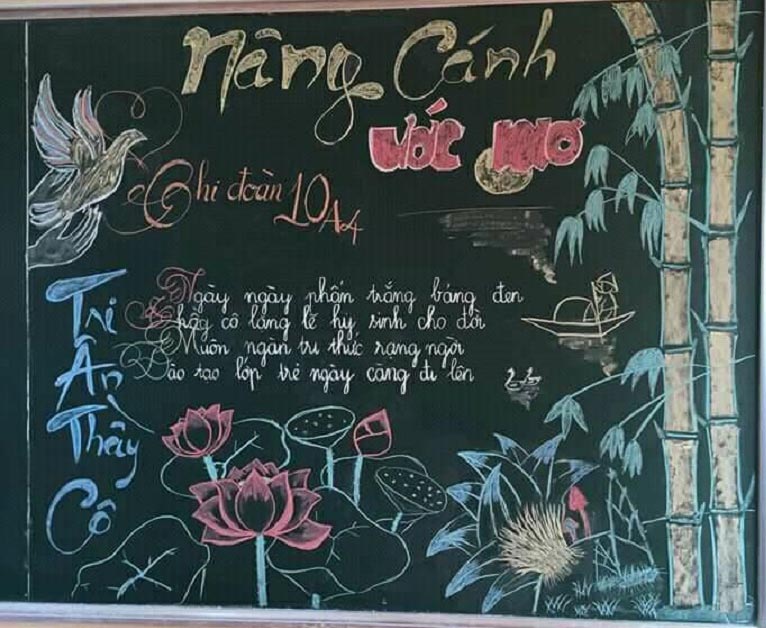 Nâng Cánh
ước mơ
Chi đoàn 10A4
Tri
Ân
Thầy
Cô
Ngày ngày phấn trắng bảng đen
Thầy cô lặng lẽ hy sinh cho đời
Muôn ngàn tri thức rạng ngời
Đào tạo lớp trẻ ngày càng đi lên